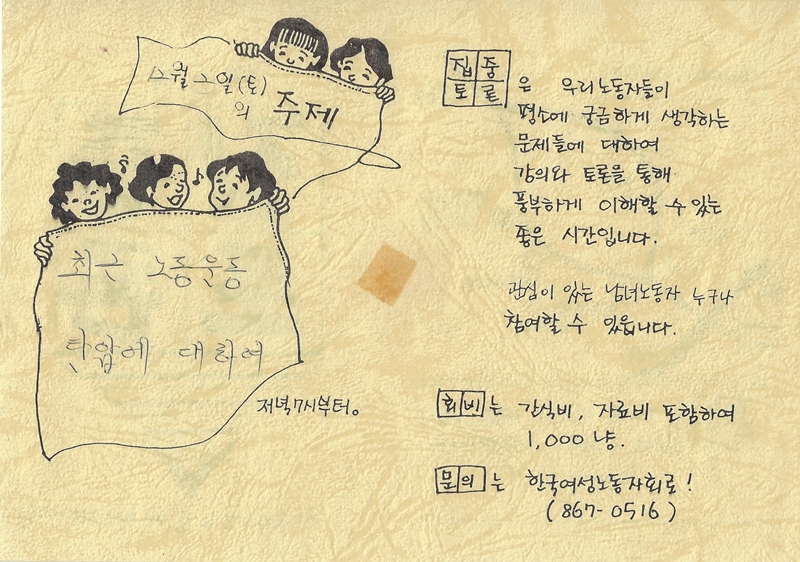 2월 2일(토)
의 주제
최근 노동운동
탄압에 대하여
저녁7시부터。
집중
토론 은 우리노동자들이
평소에 궁금하게 생각하는
문제들에 대하여
강의와 토론을 통해
풍부하게 이해할 수 있는
좋은 시간입니다.
관심이 있는 남녀노동자 누구나
참여할 수 있읍니다.
회비는 간식비, 자료비 포함하여
1,000 냥.
문의는 한국여성노동자회로!
(867-0516)